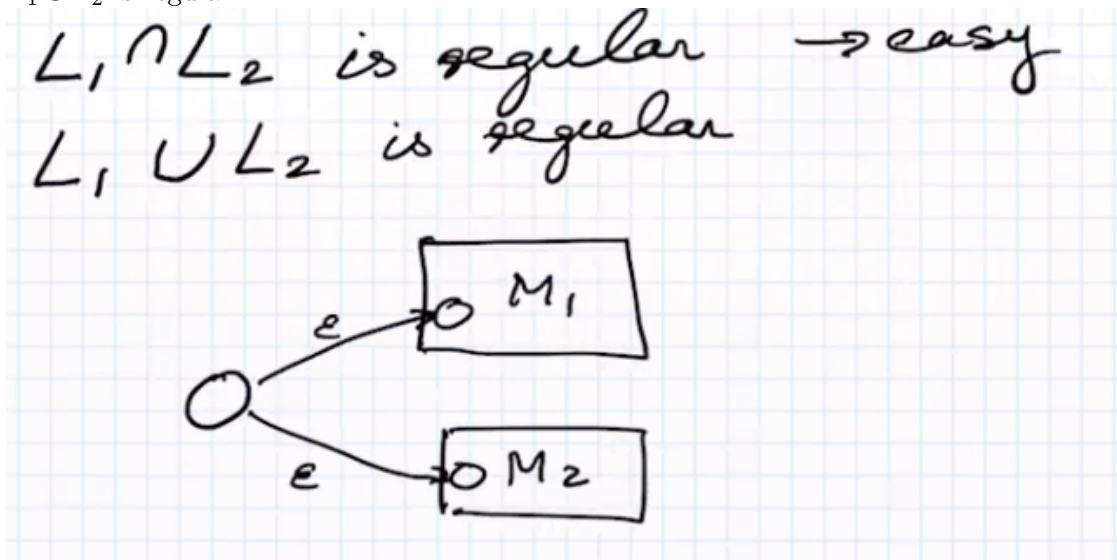 L₁ ∩ L₂ is regular → easy
L₁ ∪ L₂ is regular
M₁
ε
ε
M₂